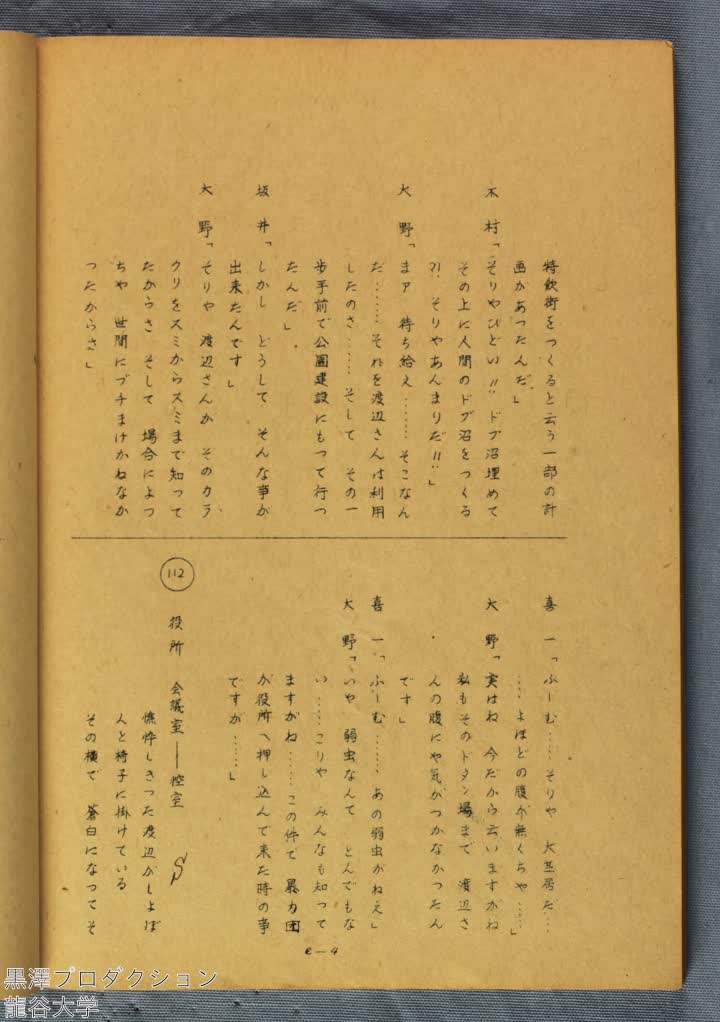 特飲街をつくると云う一部の計
画があつたんだ」
木村「そりやひどい!! ドブ沼埋めて
その上に人間のドブ沼をつくる
?! そりやあんまりだ!!」
大野「まア 待ち給え……そこなん
だ……それを渡辺さんは利用
したのさ……そして その一
歩手前で公園建設にもつて行つ
たんだ」
坂井「しかし どうして そんな事が
出来たんです」
大野「そりや 渡辺さんが そのカラ
クリをスミからスミまで知つて
たからさ そして 場合によつ
ちや 世間にブチまけかねなか
つたからさ」
喜一「ふーむ……そりや 大芝居だ…
…よほどの腹が無くちや……」
大野「実はね 今だから云いますがね
私もそのドタン場まで 渡辺さ
んの腹にや気がつかなかつたん
です」
喜一「ふーむ……あの弱虫がねえ」
大野「いや 弱虫なんて とんでもな
い……こりや みんなも知つて
ますがね……この件で 暴力団
が役所へ押し込んで来た時の事
ですが……」
112 役所 会議室──控室 S
憔悴しきつた渡辺がしよぼ
んと椅子に掛けている
その横で 蒼白になつてそ
e-4
黒澤プロダクション
龍谷大学